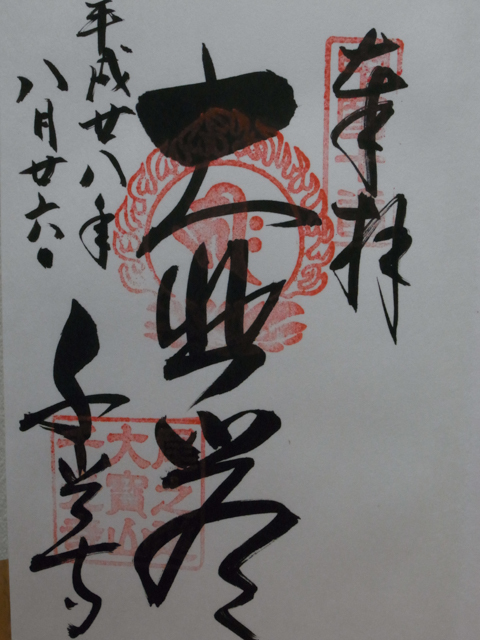 奉拝
大悲閣
平成廿八年
八月廿六日
千光寺
大寳山